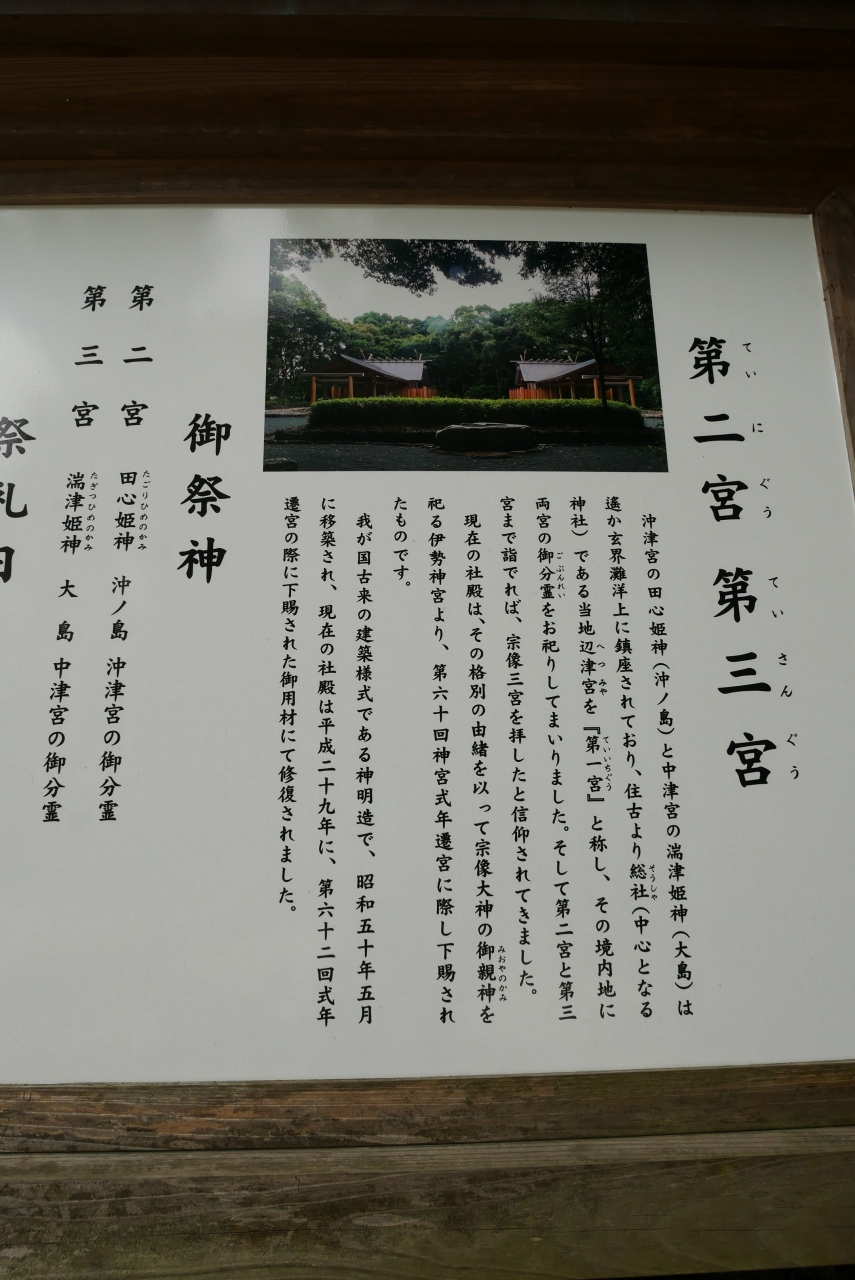 第二宮 第三宮
ていにぐう ていさんぐう
沖津宮の田心姫神(沖ノ島)と中津宮の湍津姫神(大島)は
遙か玄界灘洋上に鎮座されており、住古より総社(中心となる
そうしゃ
神社)である当地辺津宮を『第一宮』と称し、その境内地に
へつみや ていいちぐう
両宮の御分霊をお祀りしてまいりました。そして第二宮と第三
ごぶんれい
宮まで詣でれば、宗像三宮を拝したと信仰されてきました。
現在の社殿は、その格別の由緒を以って宗像大神の御親神を
みおやのかみ
祀る伊勢神宮より、第六十回神宮式年遷宮に際し下賜され
たものです。
我が国古来の建築様式である神明造で、昭和五十年五月
に移築され、現在の社殿は平成二十九年に、第六十二回式年
遷宮の際に下賜された御用材にて修復されました。
御祭神
第二宮 田心姫神 沖ノ島 沖津宮の御分霊
たごりひめのかみ
第三宮 湍津姫神 大島 中津宮の御分霊
たぎつひめのかみ
祭礼日